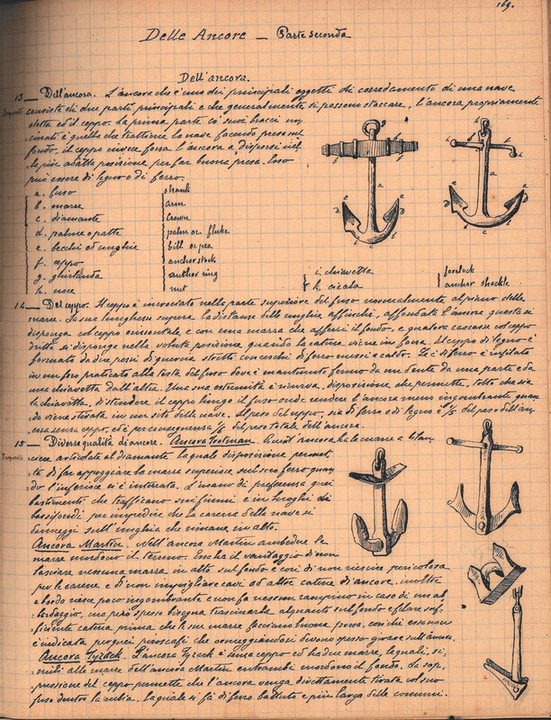 169.
Delle Ancore — Parte seconda
Dell'ancora.
13 — Dell'ancora. L'ancora che è uno dei principali oggetti di corredamento di una nave
consiste di due parti principali e che generalmente si possono staccare, l'ancora propriamente
detta ed il ceppo. La prima parte coi suoi bracci un-
cinati è quella che trattiene la nave facendo presa sul
fondo, il ceppo invece forza l'ancora a disporsi nel-
la più adatta posizione per far buona presa. Esso
può essere di legno o di ferro.
a. fuso shank
b. marre arm
c. diamante crown
d. palme o patte palm or fluke
e. becchi od unghie bill or pea
f. ceppo anchorstock
g. ghirlanda anchor ring
h. noce nut
i. chiavetta forelock
k. cicala anchor shackle
14 — Del ceppo. Il ceppo è incrociato nella parte superiore del fuso normalmente al piano delle
marre. La sua lunghezza supera la distanza delle unghie affinchè, affondata l'ancora questa si
disponga col ceppo orizzontale e con una marra che afferri il fondo, e qualora cascasse col ceppo
dritto si disponga nella voluta posizione, quando la catena viene in forza. Il ceppo di legno è
formato da due pezzi di quercia stretti con cerchi di ferro messi a caldo. Se è di ferro è infilato
in un foro praticato alla testa del fuso dove è mantenuto fermo da un dente da una parte e da
una chiavetta dall'altra. Una sua estremità è ricurva, disposizione che permette, tolta che sia
la chiavetta, di distendere il ceppo lungo il fuso onde rendere l'ancora meno ingombrante quan-
do viene stivata in un sito della nave. Il peso del ceppo, sia di ferro o di legno è 1/5 del peso dell'an-
cora senza ceppo, ed è per conseguenza 1/6 del peso totale dell'ancora.
15 — Diverse qualità di ancore. Ancora Trotman. Quest'ancora ha le marre a bilan-
ciere articolate al diamante la quale disposizione permet-
te di far appoggiare la marra superiore sul suo ferro quan-
do l'inferiore si è interrata. L'usano di preferenza quei
bastimenti che trafficano sui fiumi e in luoghi di
bassifondi per impedire che la carena della nave si
danneggi sull'unghia che rimane in alto.
Ancora Martin. Nell'ancora Martin ambedue le
marre mordono il terreno. Poichè il vantaggio di non
lasciare nessuna marra in alto sul fondo e così di non riuscire pericolosa
per le carene e di non impigliare cavi od altre catene di ancore, inoltre
a bordo riesce poco ingombrante e non fa nessun rampino in caso di un ab-
bordaggio, ma però spesso bisogna trascinarla alquanto sul fondo e filare suf-
ficiente catena prima che le sue marre facciano buona presa, cosichè essa non
è indicata per quei piroscafi che ormeggiandosi devono spesso girare sull'ancora.
Ancora Tyzack. L'ancora Tyzack è senza ceppo ed ha due marre, le quali, si-
mili alle marre dell'ancora Martin entrambi mordono il fondo. La sop-
pressione del ceppo permette che l'ancora venga direttamente tirata col suo
fuso dentro la cubia, la quale si fa di ferro battuto e più larga delle comuni.